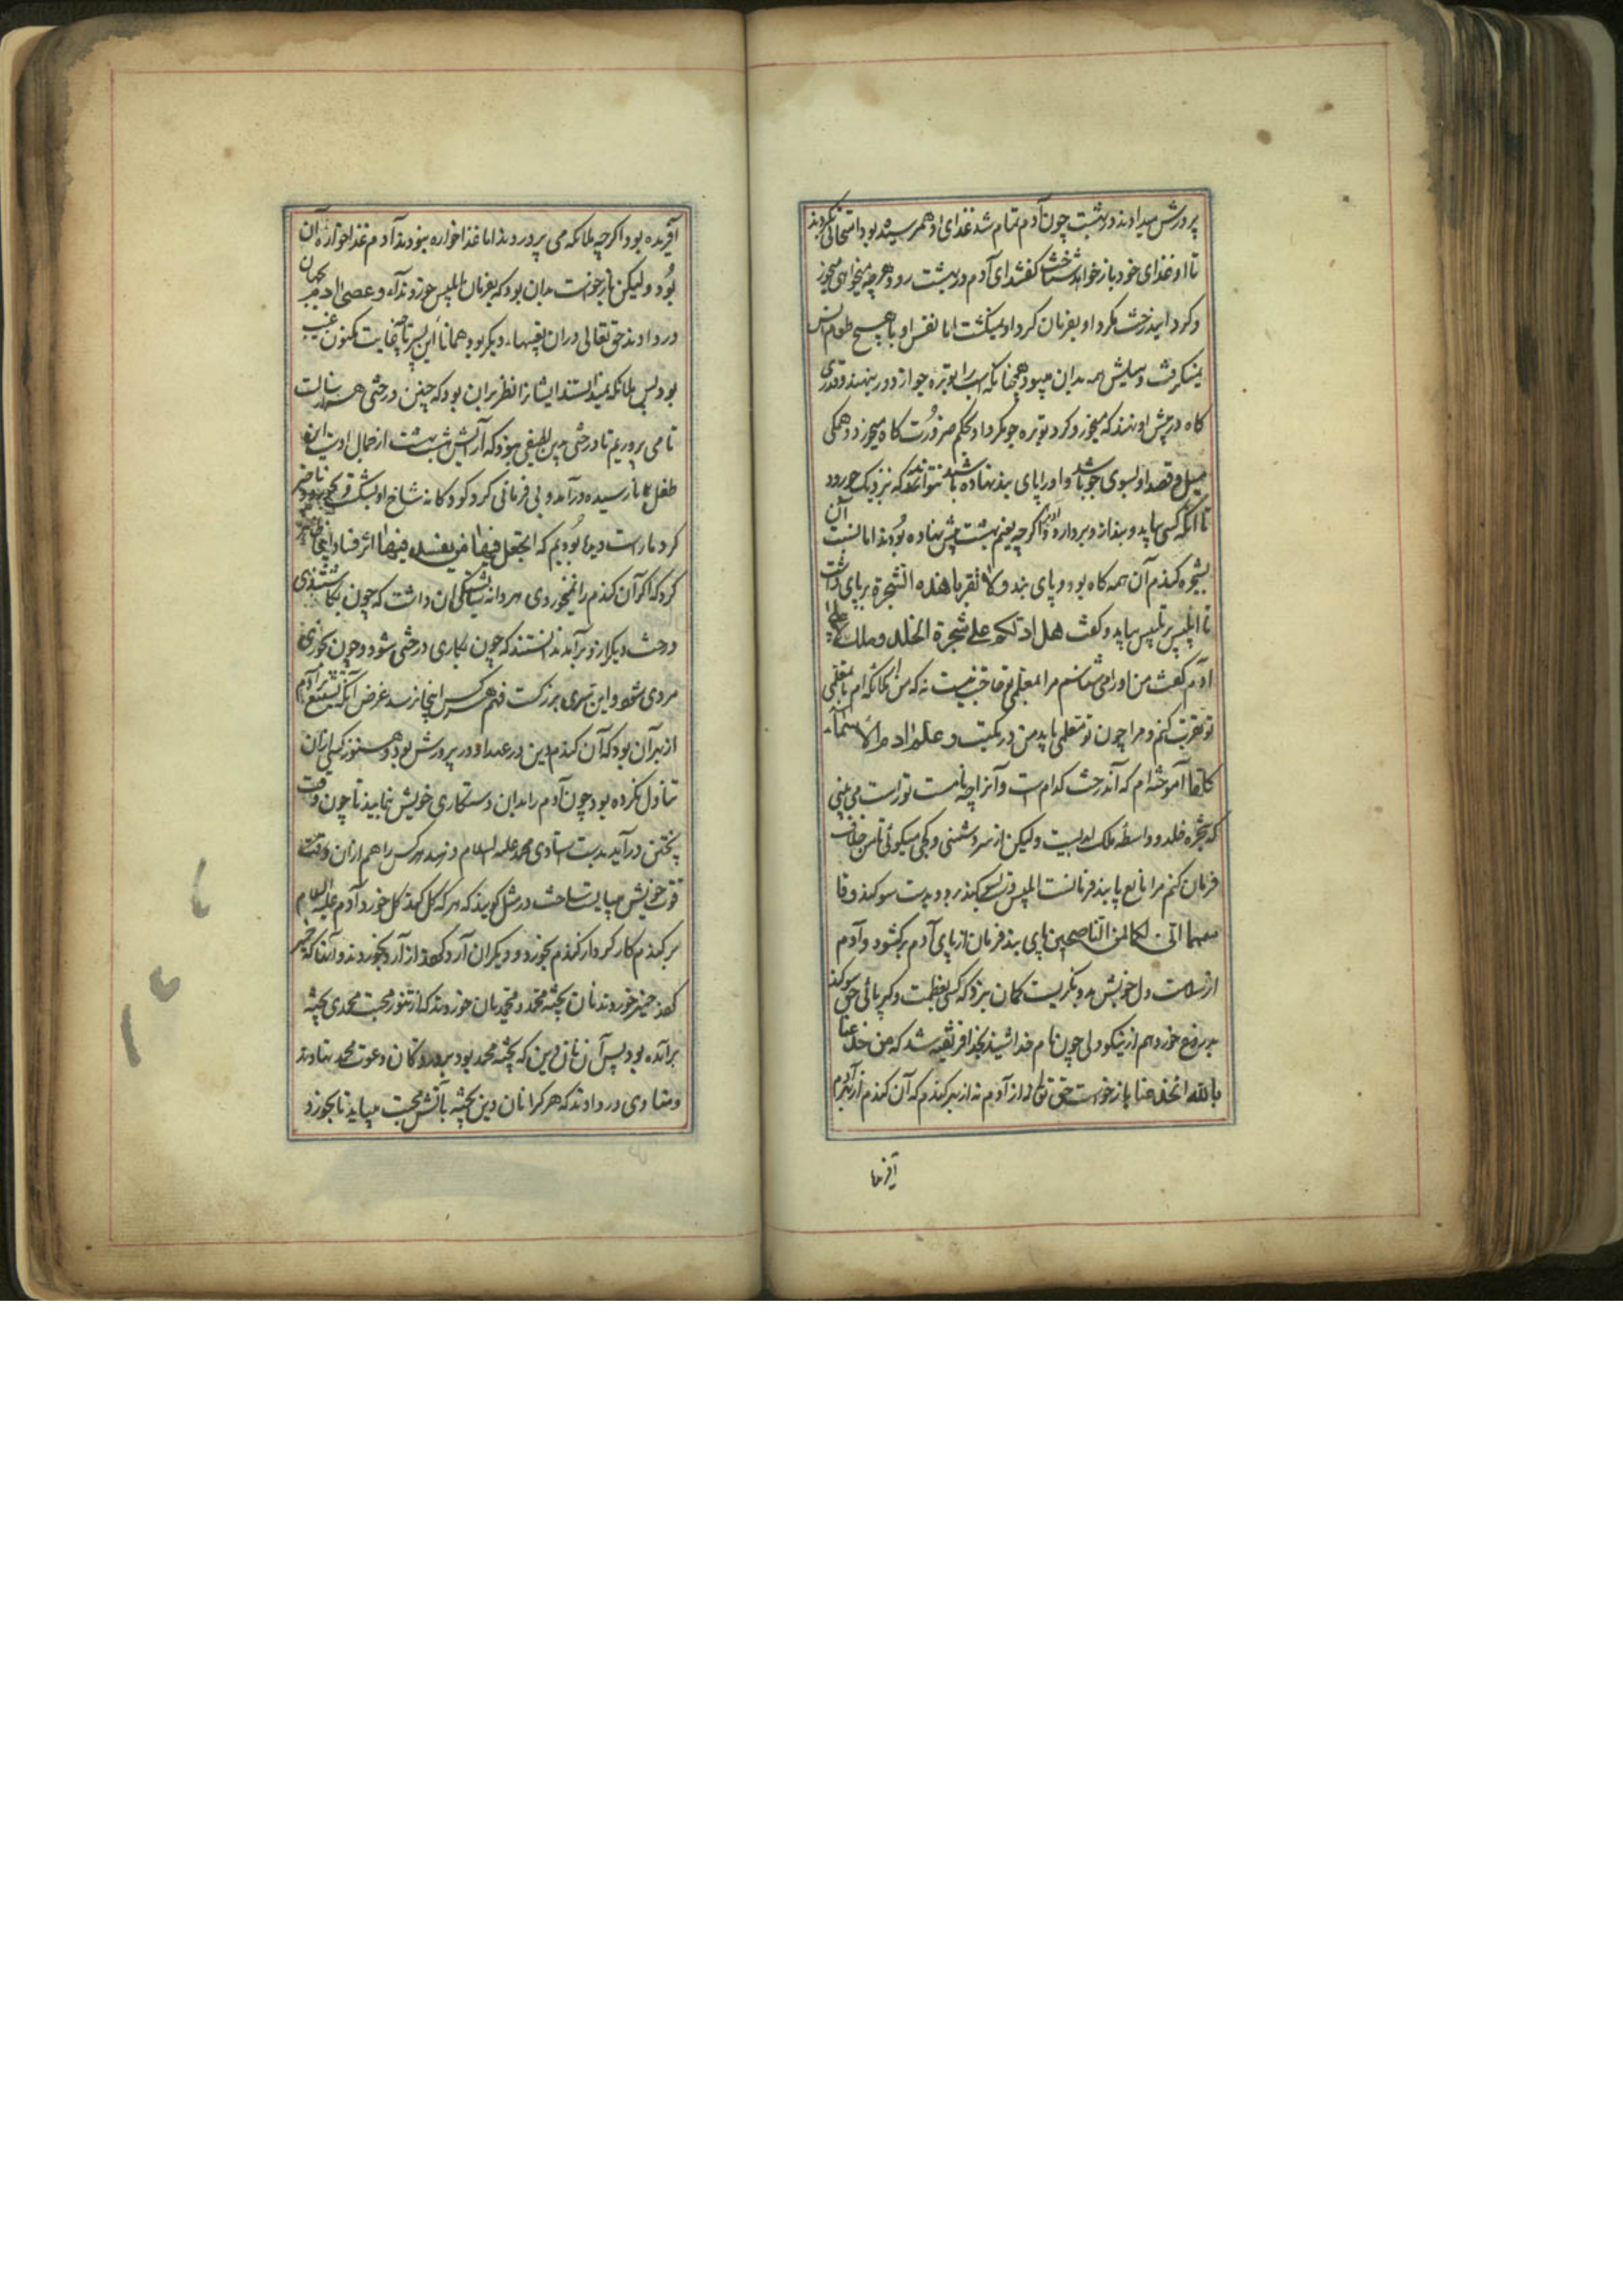 پرورش میدادند در بهشت چون آدم تمام شد غذای او هم رسیده بود امتحانی بکردند
تا او غذای خود باز خواهد شناخت گفتند ای آدم در بهشت رو و هرچه میخواهی میخور
و گرد این درخت مگرد او بفرمان گرد او نمیگشت اما نفس او با هیچ طعام انس
نمیگرفت و میلش همه بدان میبود همچنانکه اسب را توبره جو از دور بنهند و قدری
کاه در پیش او نهند که میخور و گرد توبره جو مگرد او بحکم ضرورت کاه میخورد و همگی
میل و قصد او بسوی جو باشد و اورا پای بند نهاده باشند نتواند که نزدیک جو رود
تا آنگه کسی بیاید و بند از او بردارد آدم را اگرچه نعیم بهشت پیش نهاده بودند اما نسبت آن
بشجره گندم آن همه کاه بود و پای بند ولا تقربا هذه الشجرة بر پای داشت
تا ابلیس پر تلبیس بیاید و گفت هل ادلکم علی شجرة الخلد وملک لا یبلی
آدم گفت من اورا می شناسم مرا بمعلمی تو حاجت نیست نه که من ملائکه ام تا بمعلمی
تو تقرب کنم و مرا چون تو معلمی باید من در مکتب وعلم ادم الاسماء
کلها آموخته ام که آن درخت کدام است و آنرا چه نامست تو راست می بینی
که شجره خلد و واسطه ملک ابدیست ولیکن از سر دشمنی و کجی میگوئی تا من خلاف
فرمان کنم مرا مانع پا بند فرمانست ابلیس تلبیس بکند بدو بدست سوگند وقا
سمهما انی لکما لمن الناصحین پای بند فرمان از پای آدم برگشود و آدم
از سلامت دل خویش بدو نگریست گمان نبرد که کسی بعظمت و کبریائی حق سوگند
بدروغ خورد هم از نیکودلی چون نام خدا شنید بخدا فریفته شد که من خدعنا
بالله انخدعنا بازخواست حق تعالی از آدم نه از بهر گندم که آن گندم از بهر آدم
آفریدها
آفریده بود اگرچه ملائکه می پروردند اما غذا خواره نبودند آدم غذا خواره آن
بود ولیکن بازخواست بدان بود که بفرمان ابلیس خوردند آوازه وعصی ادم بجهان
در دادند حق تعالی در آن تعبیها دیگر بود همانا این سر تا بغایت مکنون غیب
بود پس ملائکه نمیدانستند ایشانرا نظر بران بود که چنین درختی هزار سالست
تا می پروریم تا درختی بدین لطیفی نبود که آرایش هشت بهشت از جمال اوست این
طفل نارسیده در آمد و بی فرمانی کرد و کودکانه شاخ او بشکست و بخورد
کرد ما راست دیده بودیم که اتجعل فیها من یفسد فیها اثر فساد اینجا ظاهر
کرد که اگر آن گندم را نمیخوردی هر دانه شایستگی آن داشت که چون بکاشتندی
درخت دیگر از و برآمد ندانستند که چون بکاری درختی شود و چون بخوری
مردی شود و این سری بزرگست فهم هر کس اینجا نرسد غرض آنکه تتبع بر آدم
از بهر آن بود که آن گندم دین در عهد او در پرورش بود و هنوز کسی از آن
تناول نکرده بود چون آدم را بدان دستکاری خویش بنمایند تا چون وقت
پختن در آید بدست استادی محمد علیه السلام در رسد هر کس را هم از آن وقت
قوت خویش میبایست ساخت در مثل گویند که هر که گل کند گل خورد آدم علیه السلام
بر گندم کار کرد از گندم بخورد و دیگران آرد کردند از آرد بخوردند و آنها که خمیر
کردند خمیر خوردند نان پخته محمد و محمدیان خوردند که از تنور محبت محمدی پخته
برآمده بود پس آن نان دین که پخته محمد بود بر در دکان دعوت محمد نهادند
و منادی در دادند که هر کرا نان دین پخته بآتش محبت میباید تا بخورد